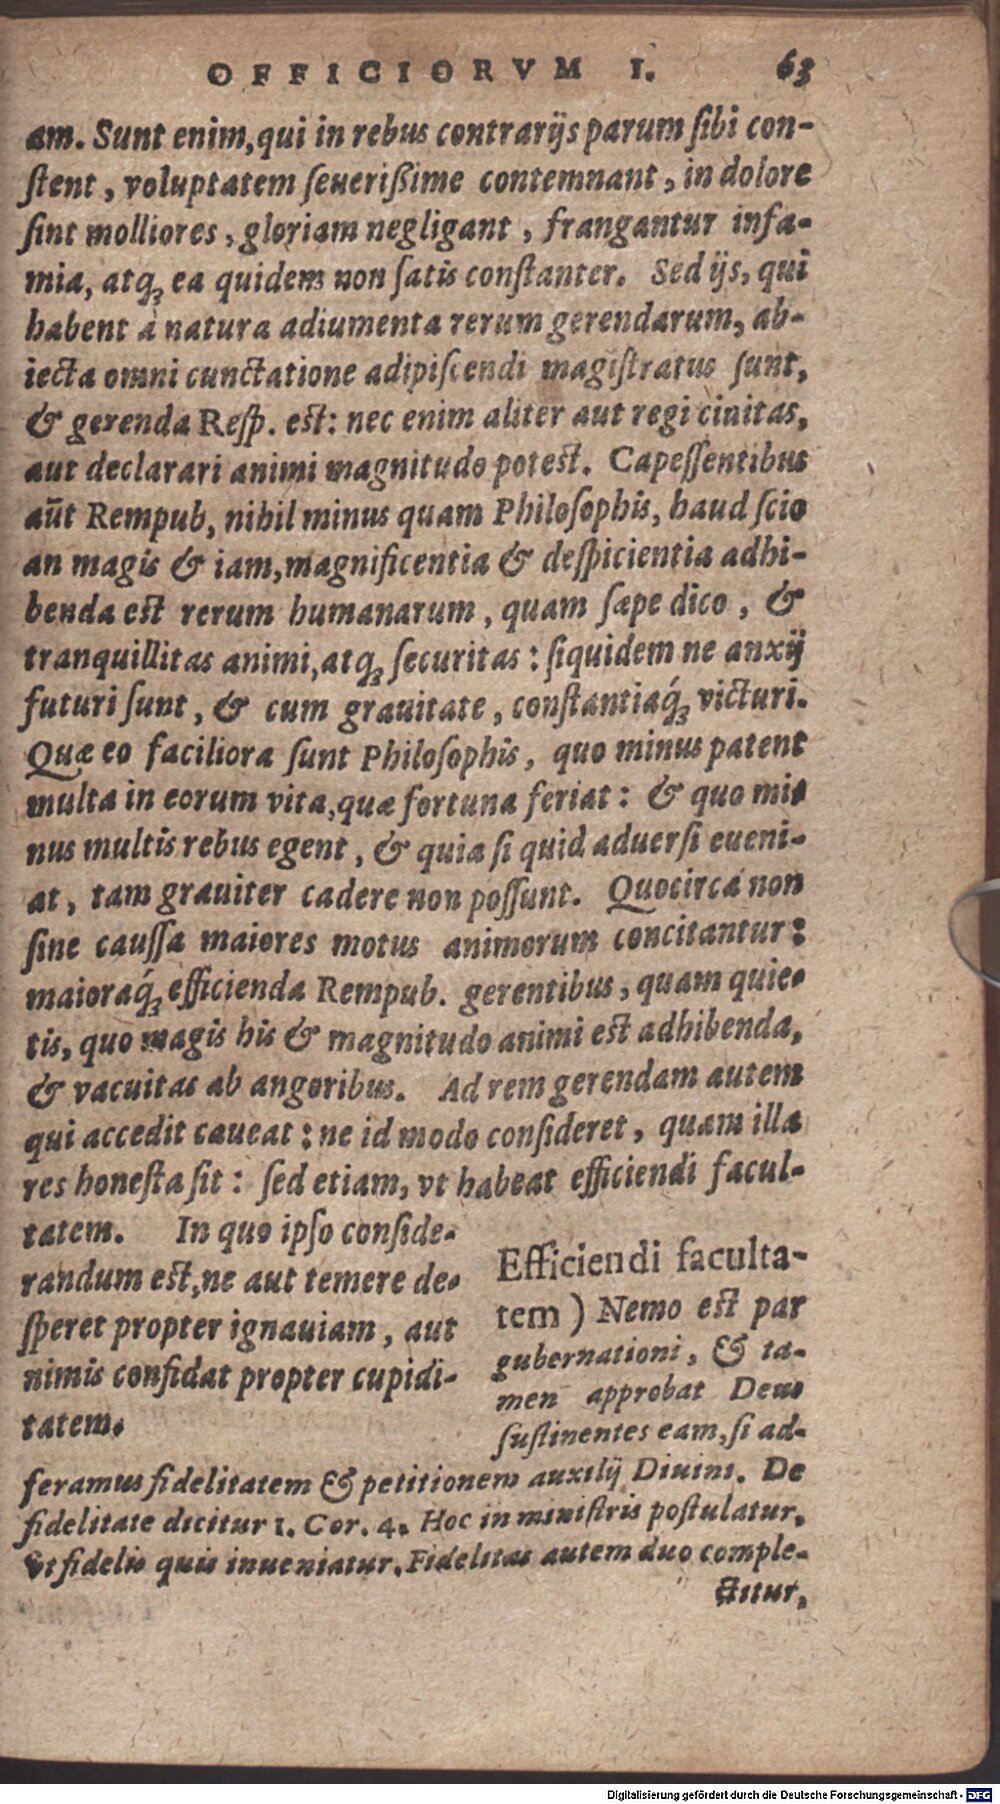 OFFICIORVM I. 63
am. Sunt enim, qui in rebus contrarijs parum ſibi con-
ſtent, voluptatem ſeuerißime contemnant, in dolore
ſint molliores, gloriam negligant, frangantur infa-
mia, atq́ꝫ ea quidem non ſatis conſtanter. Sed ijs, qui
habent à natura adiumenta rerum gerendarum, ab-
iecta omni cunctatione adipiſcendi magiſtratus ſunt,
& gerenda Reſp. est: nec enim aliter aut regi ciuitas,
aut declarari animi magnitudo potest. Capeſſentibus
aūt Rempub, nihil minus quam Philoſophis, haud ſcio
an magis & iam, magnificentia & deſpicientia adhi-
benda est rerum humanarum, quam ſæpe dico, &
tranquillitas animi, atqꝫ ſecuritas: ſiquidem ne anxij
futuri ſunt, & cum grauitate, conſtantiaq́ꝫ victuri.
Quæ eo faciliora ſunt Philoſophis, quo minus patent
multa in eorum vita, quæ fortuna feriat: & quo mi-
nus multis rebus egent, & quia ſi quid aduerſi eueni-
at, tam grauiter cadere non poſſunt. Quocirca non
ſine cauſſa maiores motus animorum concitantur:
maioraq́ꝫ efficienda Rempub. gerentibus, quam quie-
tis, quo magis his & magnitudo animi est adhibenda,
& vacuitas ab angoribus. Ad rem gerendam autem
qui accedit caueat: ne id modo conſideret, quam illa
res honeſta ſit: ſed etiam, vt habeat efficiendi facul-
tatem. In quo ipſo conſide-
randum est, ne aut temere de-
ſperet propter ignauiam, aut
nimis confidat propter cupidi-
tatem.
Efficiendi faculta-
tem) Nemo est par
gubernationi, & ta-
men approbat Deus
ſuſtinentes eam, ſi ad-
feramus fidelitatem & petitionem auxilij Diuini. De
fidelitate dicitur 1. Cor. 4. Hoc in miniſtris poſtulatur,
Vt fidelis quis inueniatur. Fidelitas autem duo comple-
ctitur,
Digitalisierung gefördert durch die Deutsche Forschungsgemeinschaft - DFG